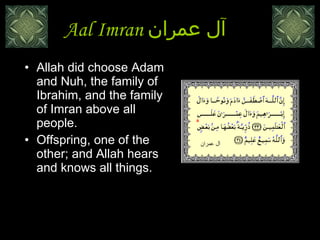 Aal Imran آل عمران
• Allah did choose Adam
and Nuh, the family of
Ibrahim, and the family
of Imran above all
people.
• Offspring, one of the
other; and Allah hears
and knows all things.
إِنَّ ٱللَّهَ ٱصْطَفَىٰٓ ءَادَمَ وَنُوحًا وَءَالَ
إِبْرَٰهِيمَ وَءَالَ عِمْرَٰنَ عَلَى
ٱلْعَٰلَمِينَ ﴿٣٣﴾ ذُرِّيَّةًۢ بَعْضُهَا مِنۢ بَعْضٍ
وَٱللَّهُ سَمِيعٌ عَلِيمٌ ﴿٣٤﴾
آل عمران